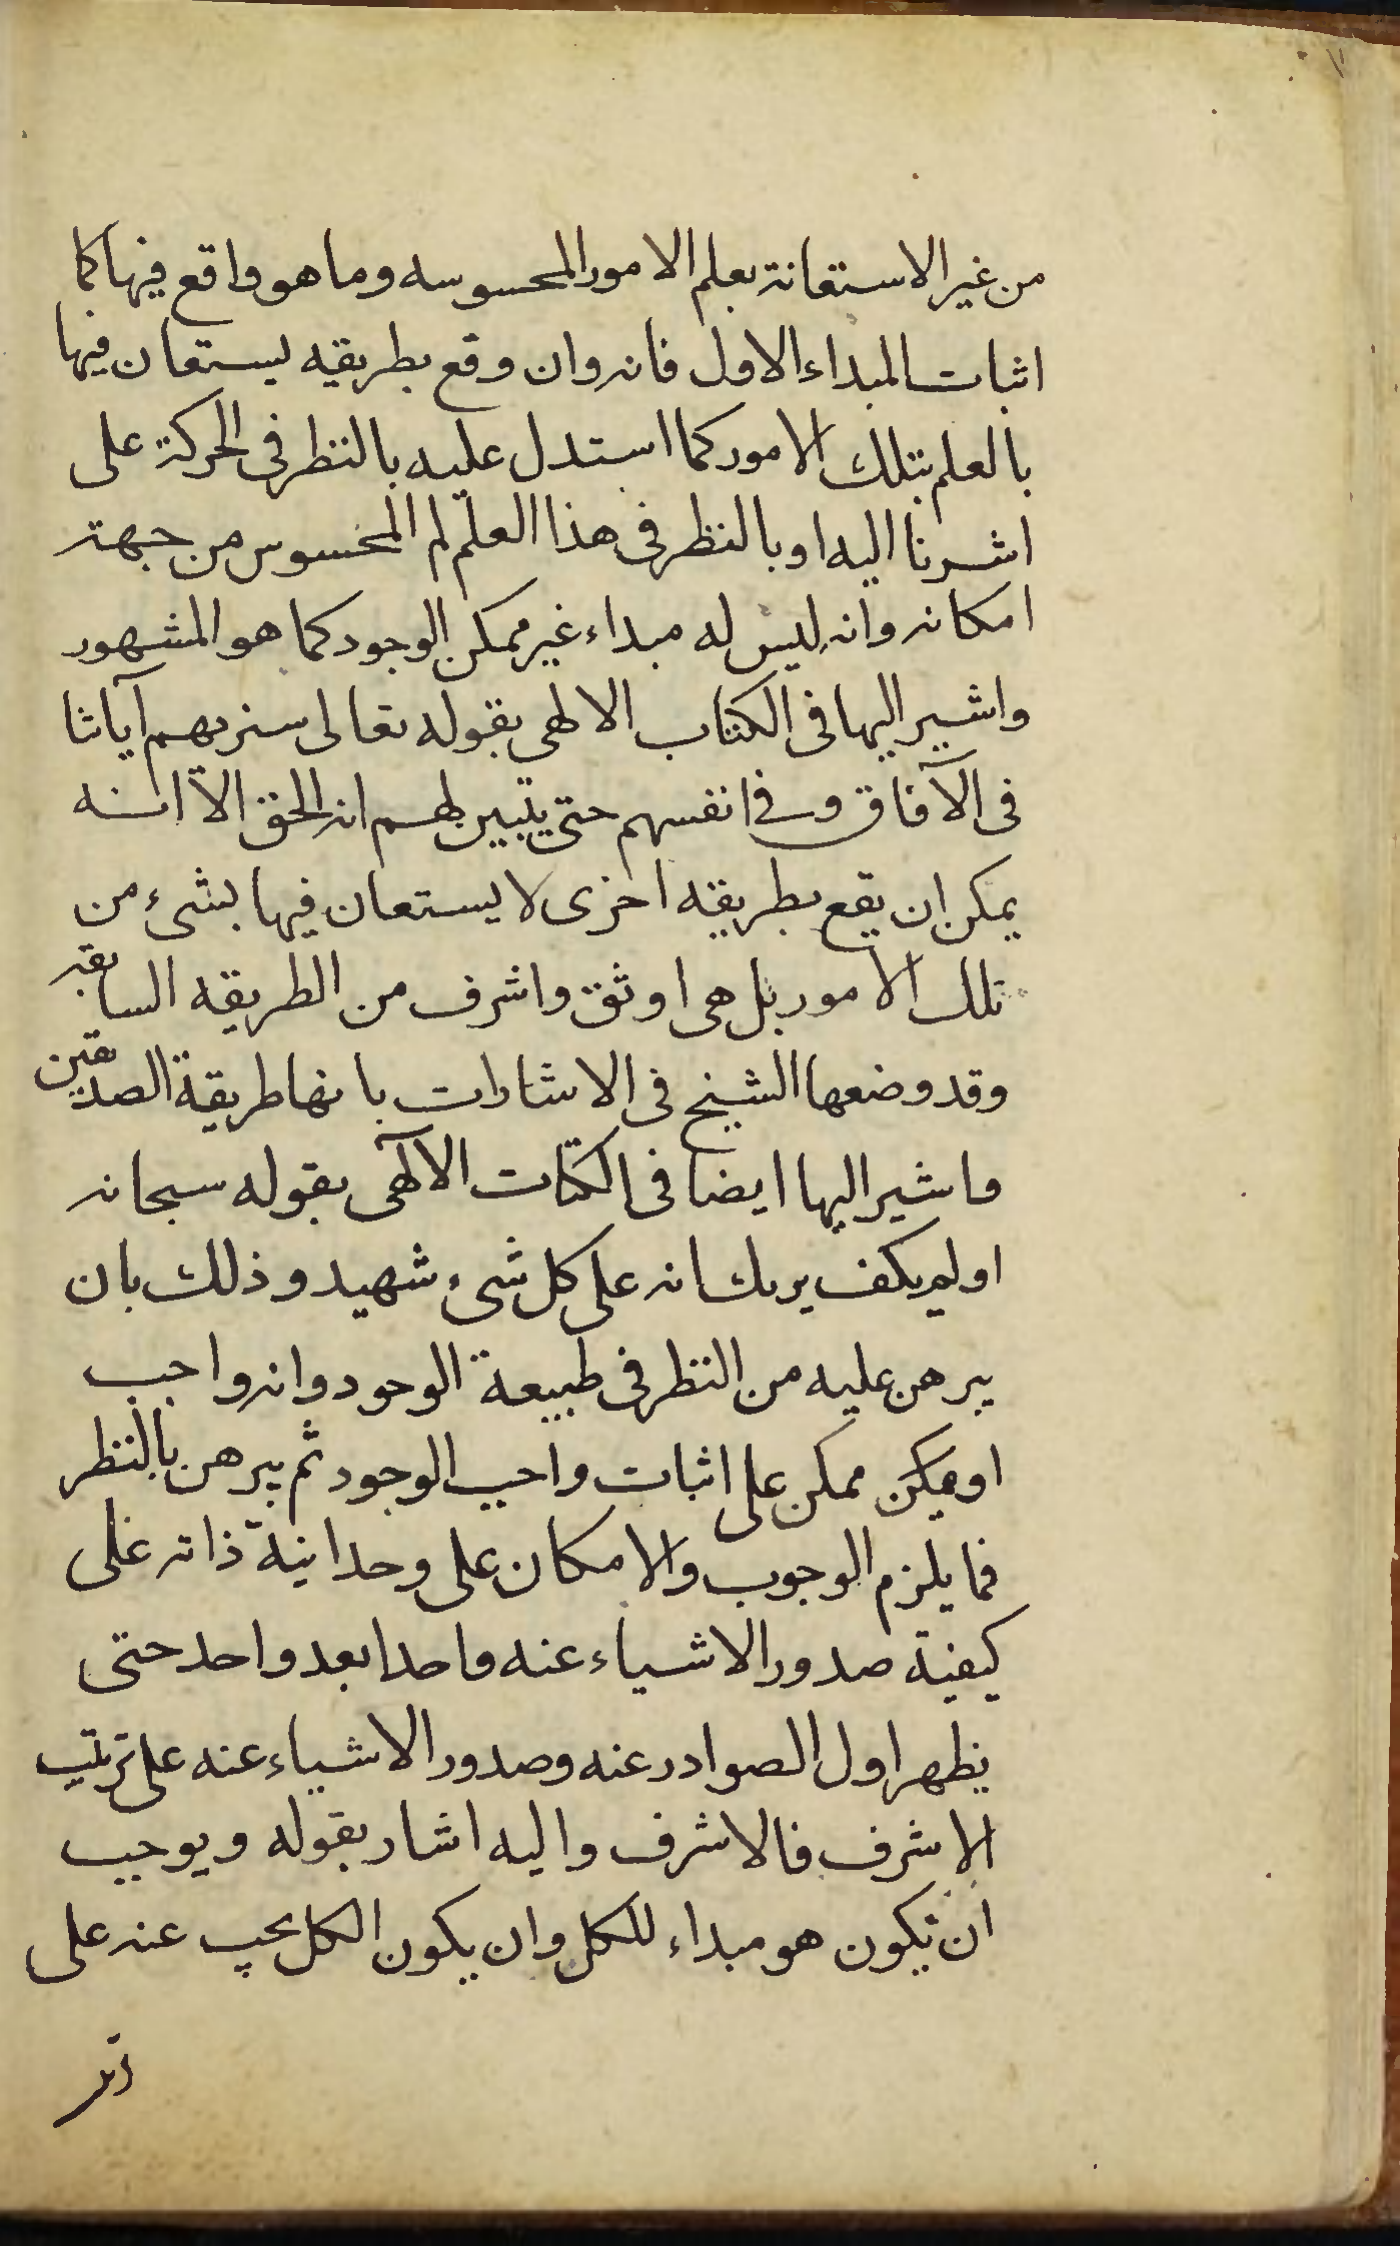 من غير الاستعانة بعلم الامور المحسوسه وما هو واقع فيها كما
اثبات المبداء الاول فانه وان وقع بطريقه يستعان فيها
بالعلم بتلك الامور كما استدل عليه بالنظر فى الحركة على
اشرنا اليه او بالنظر فى هذا العلم لم المحسوس من جهة
امكانه وانه ليس له مبداء غير ممكن الوجود كما هو المشهور
واشير اليها فى الكتاب الالهى بقوله تعالى سنريهم آياتنا
فى الآفاق وفى انفسهم حتى يتبين لهم انه الحق الا انه
يمكن ان يقع بطريقه اخرى لا يستعان فيها بشىء من
تلك الامور بل هى اوثق واشرف من الطريقه السابقه
وقد وضعها الشيخ فى الاشارات بانها طريقة الصديقين
واشير اليها ايضا فى الكتاب الآلهى بقوله سبحانه
او لم يكف بربك انه على كل شىء شهيد وذلك بان
يبرهن عليه من النظر فى طبيعة الوجود وانه واجب
او ممكن ممكن على اثبات واجب الوجود ثم يبرهن بالنظر
فما يلزم الوجوب والامكان على وحدانية ذاته على
كيفية صدور الاشياء عنه واحدا بعد واحد حتى
يظهر اول الصوادر عنه وصدور الاشياء عنه على ترتيب
الاشرف فالاشرف واليه اشار بقوله ويوجب
ان تكون هو مبداء للكل وان يكون الكل يجب عنه على